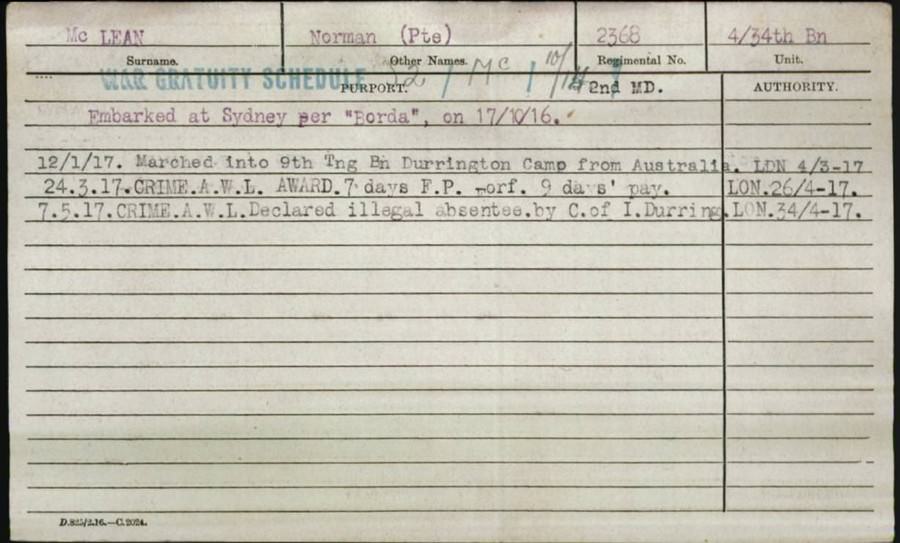 Mc LEAN Norman (Pte) 2368 4/34th Bn
Surname. Other Names. Regimental No. Unit.
WAR GRATUITY SCHEDULE 52 / Mc / 10/14
PURPORT. 2nd MD. AUTHORITY.
Embarked at Sydney per "Borda", on 17/10/16.
12/1/17. Marched into 9th Tng Bn Durrington Camp from Australia. LDN 4/3-17
24.3.17.CRIME.A.W.L. AWARD.7 days F.P. forf. 9 days' pay. LON.26/4-17.
7.5.17.CRIME.A.W.L.Declared illegal absentee.by C.of I.Durring.LON.34/4-17.
D.825/2.16.—C.2024.